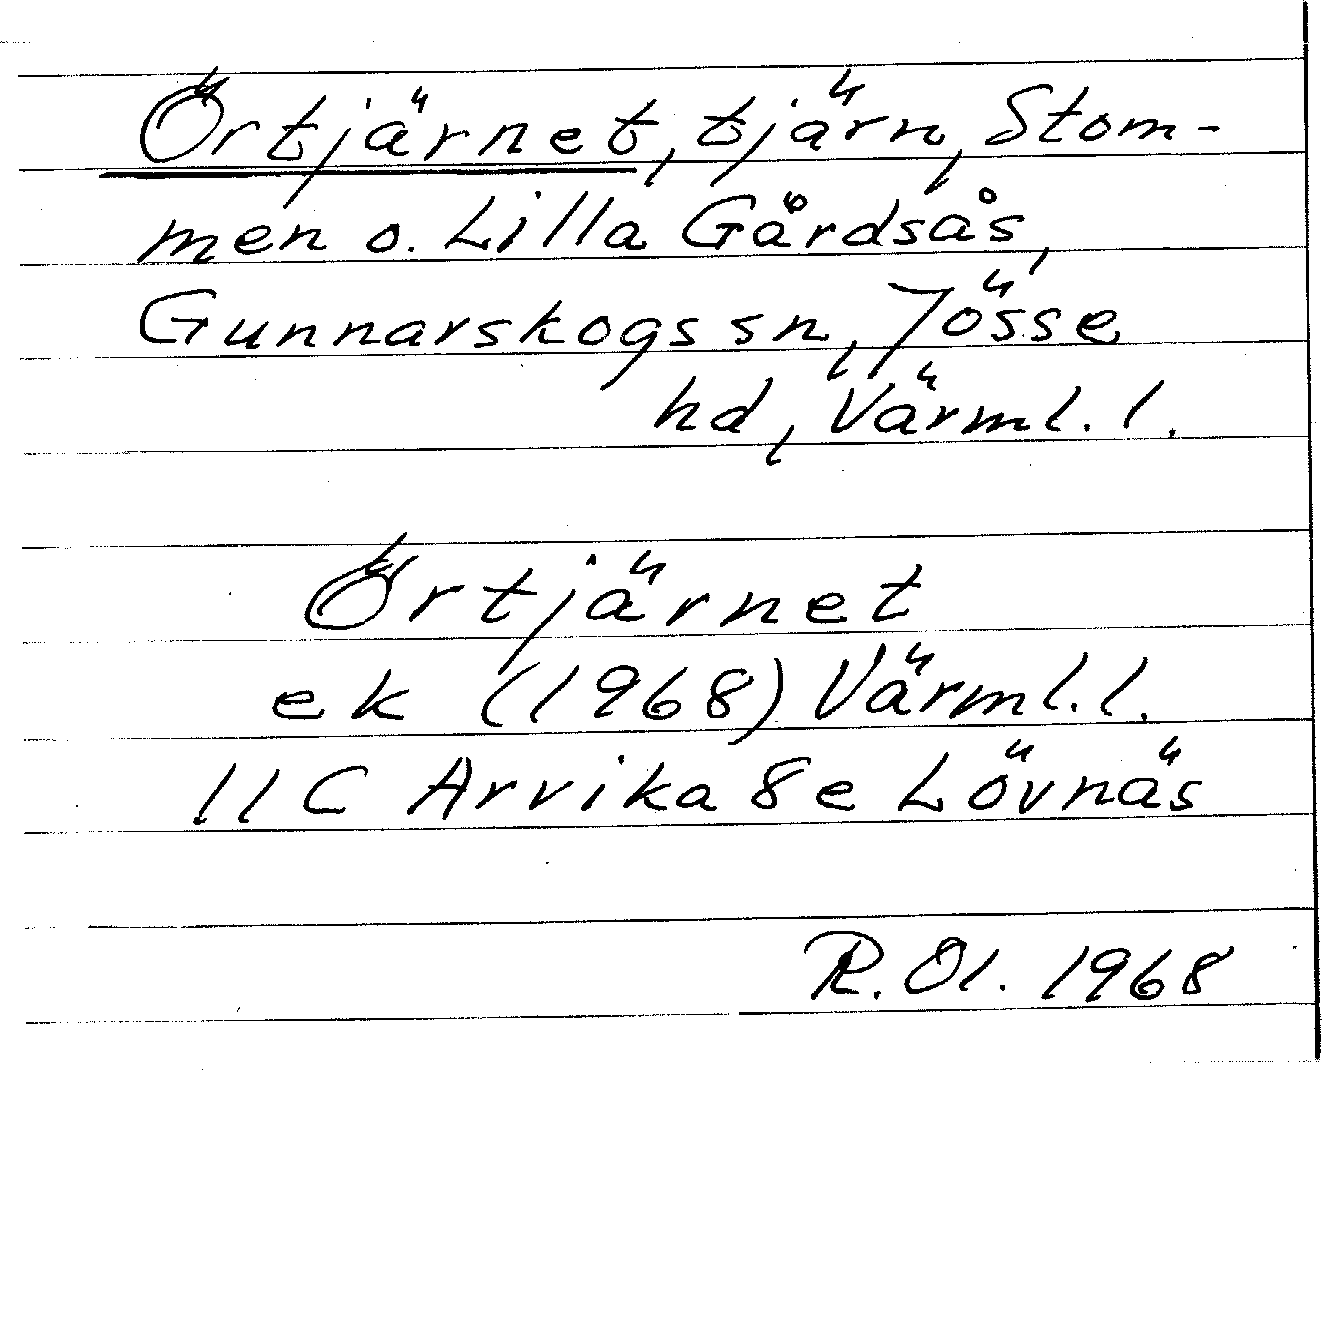 Örtjärnet, tjärn, Stom-
men o. Lilla Gårdsås,
Gunnarskogs sn, Jösse
hd, Värml. l.
Örtjärnet
ek (1968) Värml. l.
11C Arvika 8e Lövnäs
R. Ol. 1968